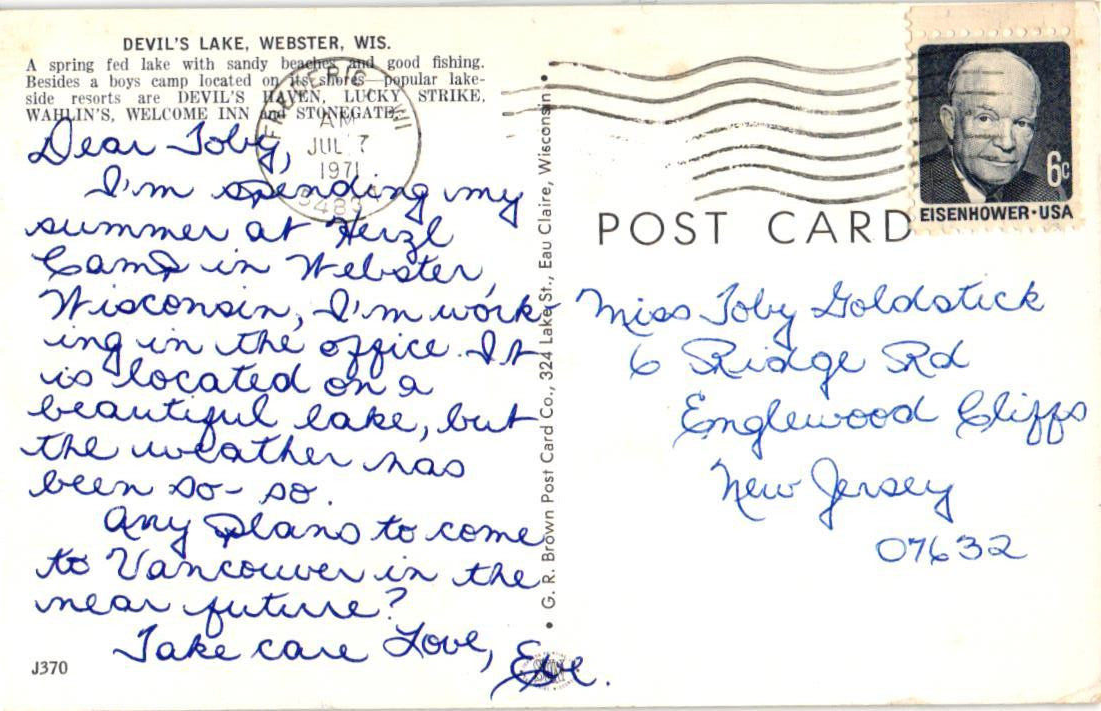 DEVIL'S LAKE, WEBSTER, WIS.
A spring fed lake with sandy beaches and good fishing.
Besides a boys camp located on its shores popular lake-
side resorts are DEVIL'S HAVEN, LUCKY STRIKE,
WAHLIN'S, WELCOME INN and STONEGATE.
Dear Toby,
I'm spending my
summer at Herzl
Camp in Webster,
Wisconsin, I'm work-
ing in the office. It
is located on a
beautiful lake, but
the weather has
been so-so.
Any plans to come
to Vancouver in the
near future?
Take care Love, Eve.
J370
FREDERIC, WI
AM
JUL 7
1971
• G. R. Brown Post Card Co., 324 Lake St., Eau Claire, Wisconsin •
6c
EISENHOWER·USA
POST CARD
Miss Toby Goldstick
6 Ridge Rd
Englewood Cliffs
New Jersey
07632